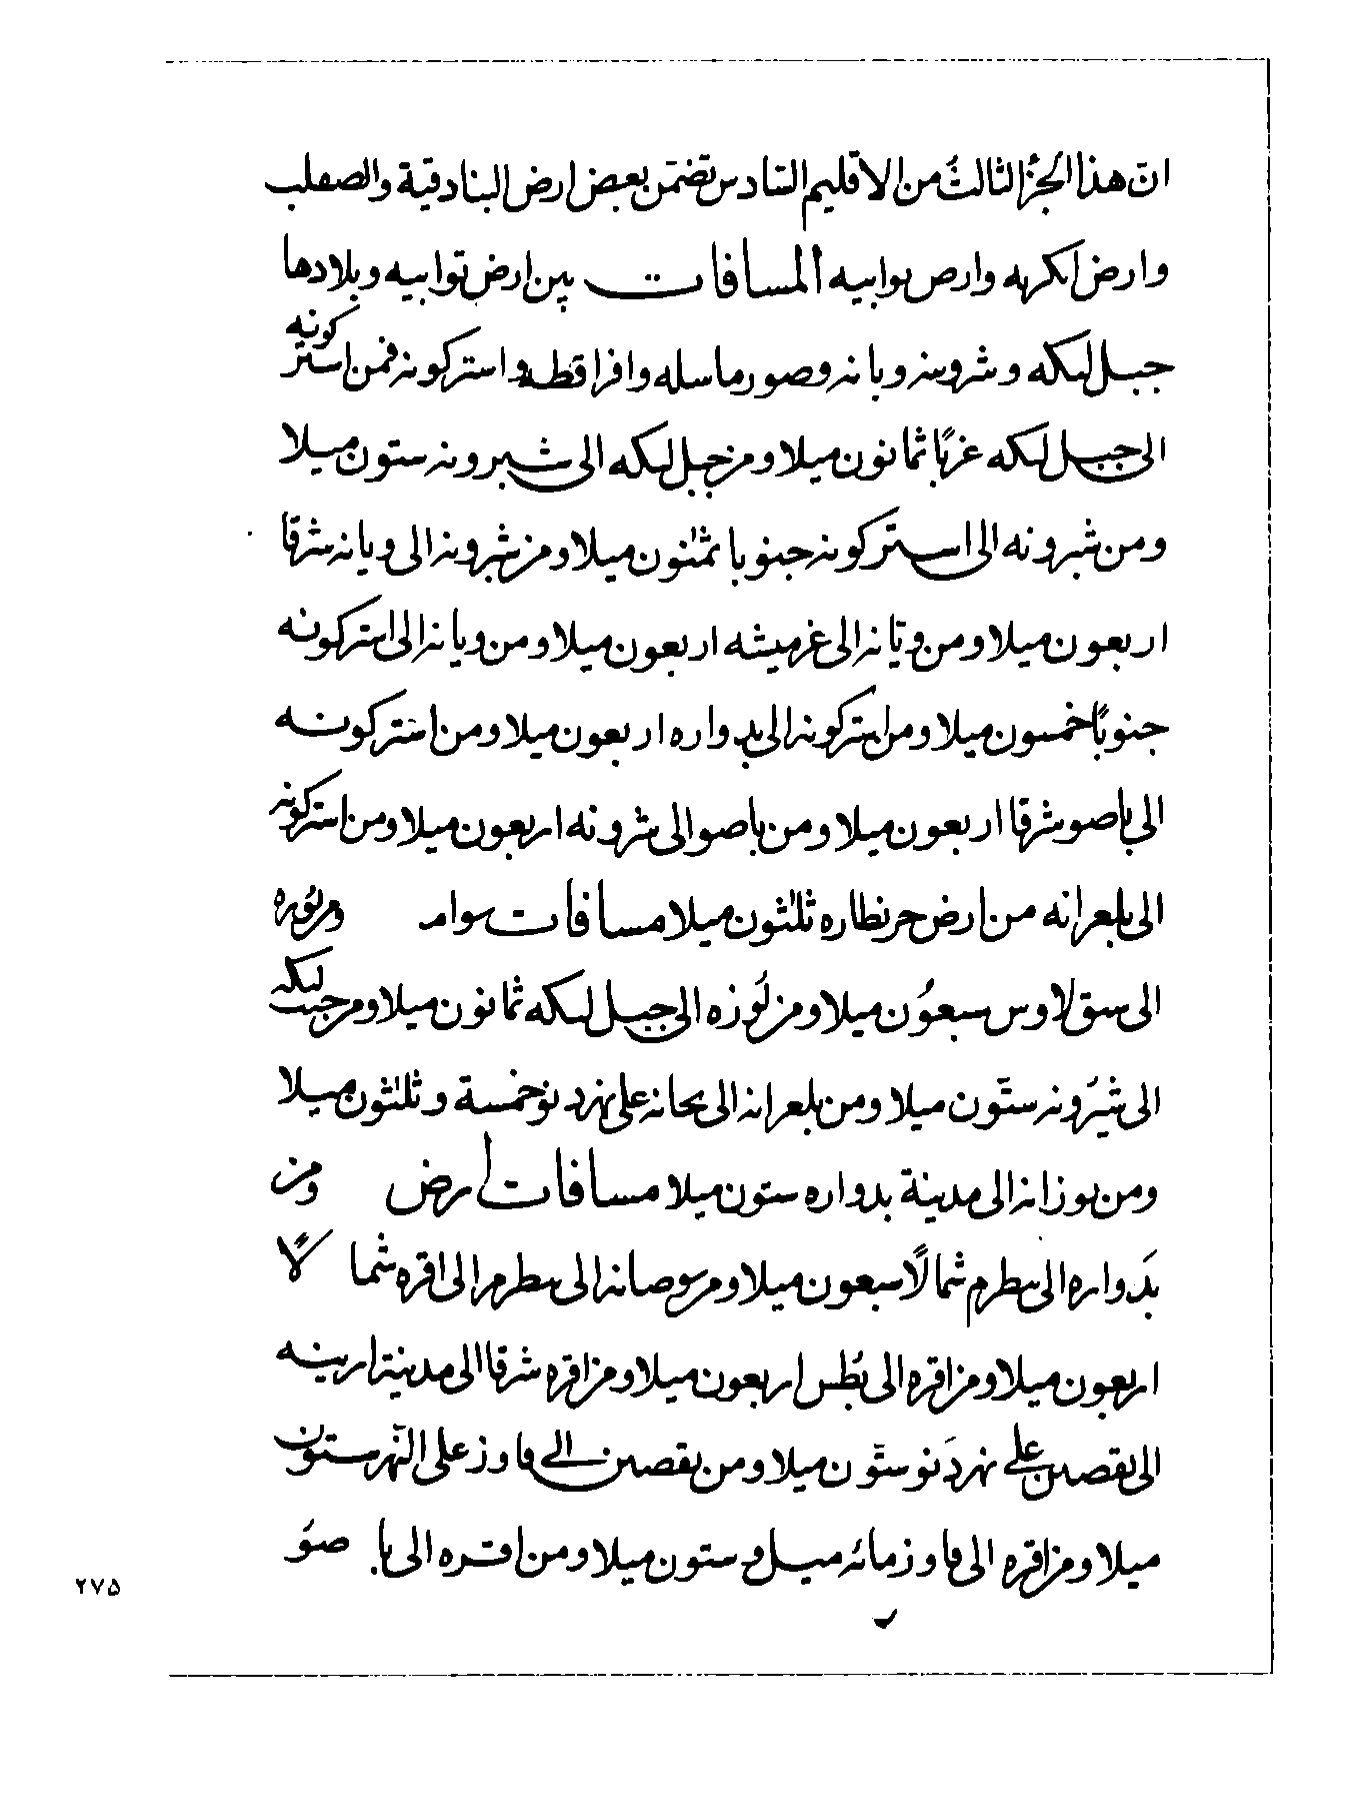 انّ هذا الجُزُ الثالثُ من الاقليم السّادس تضمّن بعض ارض البنادقية والصقلب
وارض انكريه وارص بوابيه المسافات بين ارض توابيه وبلادها
جبل لىكه وشرونىه وبانه وصورماسله وافراقطه واستركونه فمن استركونه
الى جبل لىكه غربًا ثمانون ميلا ومن جبل لىكه الى شبرونه ستون ميلا
ومن شبرونه الى استركونه جنوبا ثمثنون ميلا ومن شبرونه الى ويانه شرقا
اربعون ميلا ومن ويانه الى غرميشه اربعون ميلا ومن ويانه الى استركونه
جنوبًا خمسون ميلا ومن استركونه الى بدواره اربعون ميلا ومن استركونه
الى باصو شرقا اربعون ميلا ومن باصو الى شرونه اربعون ميلا ومن استركونه
الى بلعرانه من ارض حرنطاره ثلثون ميلا مسافات سوامه ومن لوزه
الى سىقلاوس سبعون ميلا ومن لوزه الى جبل لىكه ثمانون ميلا ومن جبل لىكه
الى شبرونه ستّون ميلا ومن بلعرانه الى بحانه على نهر دنو خمسة وثلثون ميلا
ومن بوزانه الى مدينة بدواره ستون ميلا مسافات ارض ومن
بدواره الى سطرم شمالًا سبعون ميلا ومن بوصانه الى سطرم الى اقره شمالًا
اربعون ميلا ومن اقره الى بُطس اربعون ميلا ومن اقره شرقا الى مدينة ارينيه
الى بقصىن على نهر دنو ستّون ميلا ومن بقصىن الى ڡاوز على النّهر ستون
ميلا ومن اقره الى ڡاوز مائه ميل وستون ميلا ومن اقره الى باصو
٢٧٥